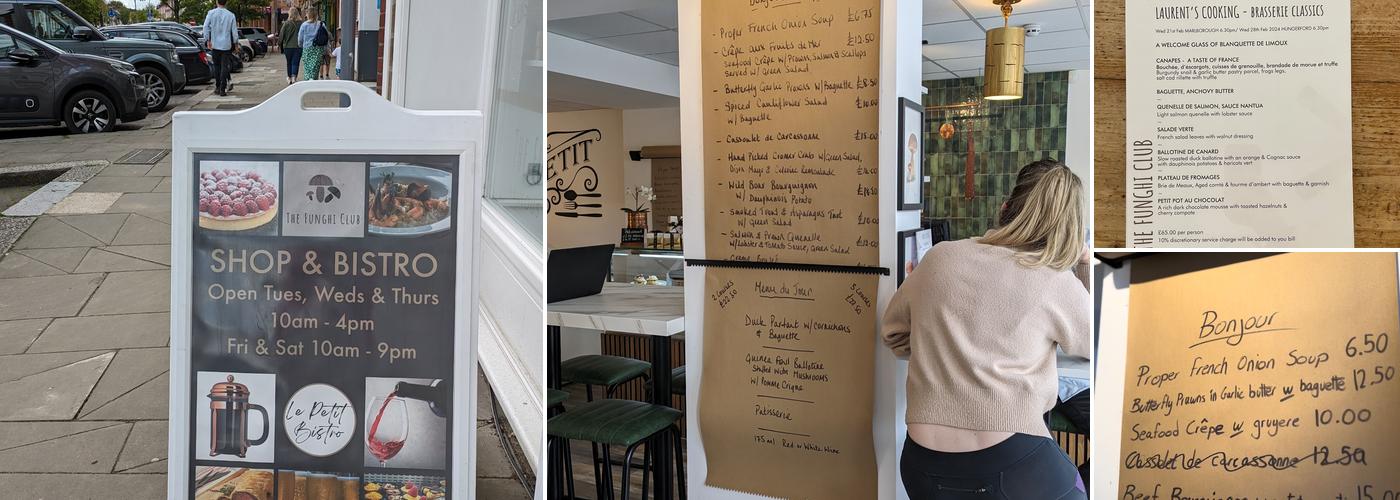 THE FUNGHI CLUB
SHOP & BISTRO
Open Tues, Weds & Thurs
10am - 4pm
Fri & Sat 10am - 9pm
Le Petit
Bistro
ETIT
- Proper French Onion Soup £6.75
- Crêpe aux Fruits de Mer £12.50
Seafood Crêpe w/Prawns, Salmon & Scallops
served w/ Green Salad
- Butterfly Garlic Prawns w/Baguette £8.50
- Spiced Cauliflower Salad £10.00
w/ Baguette
- Cassoulet de Carcassonne £15.00
- Hand Picked Cromer Crab w/Green Salad,
- Wild Boar Bourguignon
w/ Dauphinois Potato
- Smoked Trout & Asparagus Tart
w/ Green Salad
- Salmon & Prawn Quenelle
w/Lobster & Tomato Sauce, Green Salad
Menu du Jour
2 Courses
£22.50
Duck Parfait w/ Cornichons
& Baguette
Guinea Fowl Ballotine
Stuffed with Mushrooms
w/ Pomme
Patisserie
175ml Red or White Wine
LAURENT'S COOKING - BRASSERIE CLASSICS
Wed 21st Feb MARLBOROUGH 6.30pm/ Wed 28th Feb 2024 HUNGERFORD 6.30pm
A WELCOME GLASS OF BLANQUETTE DE LIMOUX
CANAPES - A TASTE OF FRANCE
Bouchée, d'escargots, cuisses de grenouille, brandade de morue et truffe
Burgundy snail & garlic butter pastry parcel, frogs legs,
salt cod rillette with truffle
BAGUETTE, ANCHOVY BUTTER
QUENELLE DE SALMON, SAUCE NANTUA
Light salmon quenelle with lobster sauce
SALADE VERTE
French salad leaves with walnut dressing
BALLOTINE DE CANARD
Slow roasted duck ballotine with an orange & Cognac sauce
with dauphinois potatoes & haricots vert
PLATEAU DE FROMAGES
Brie de Meaux, Aged comté & fourme d'ambert with baguette & garnish
PETIT POT AU CHOCOLAT
A rich dark chocolate mousse with toasted hazelnuts &
cherry compote
£65.00 per person
10% discretionary service charge will be added to you bill
THE FUNGHI CLUB
Bonjour
Proper French Onion Soup 6.50
Butterfly Prawns in Garlic butter w baguette 12.50
Seafood Crêpe w gruyere 10.00
Cassoulet de Carcassonne 12.50
Beef